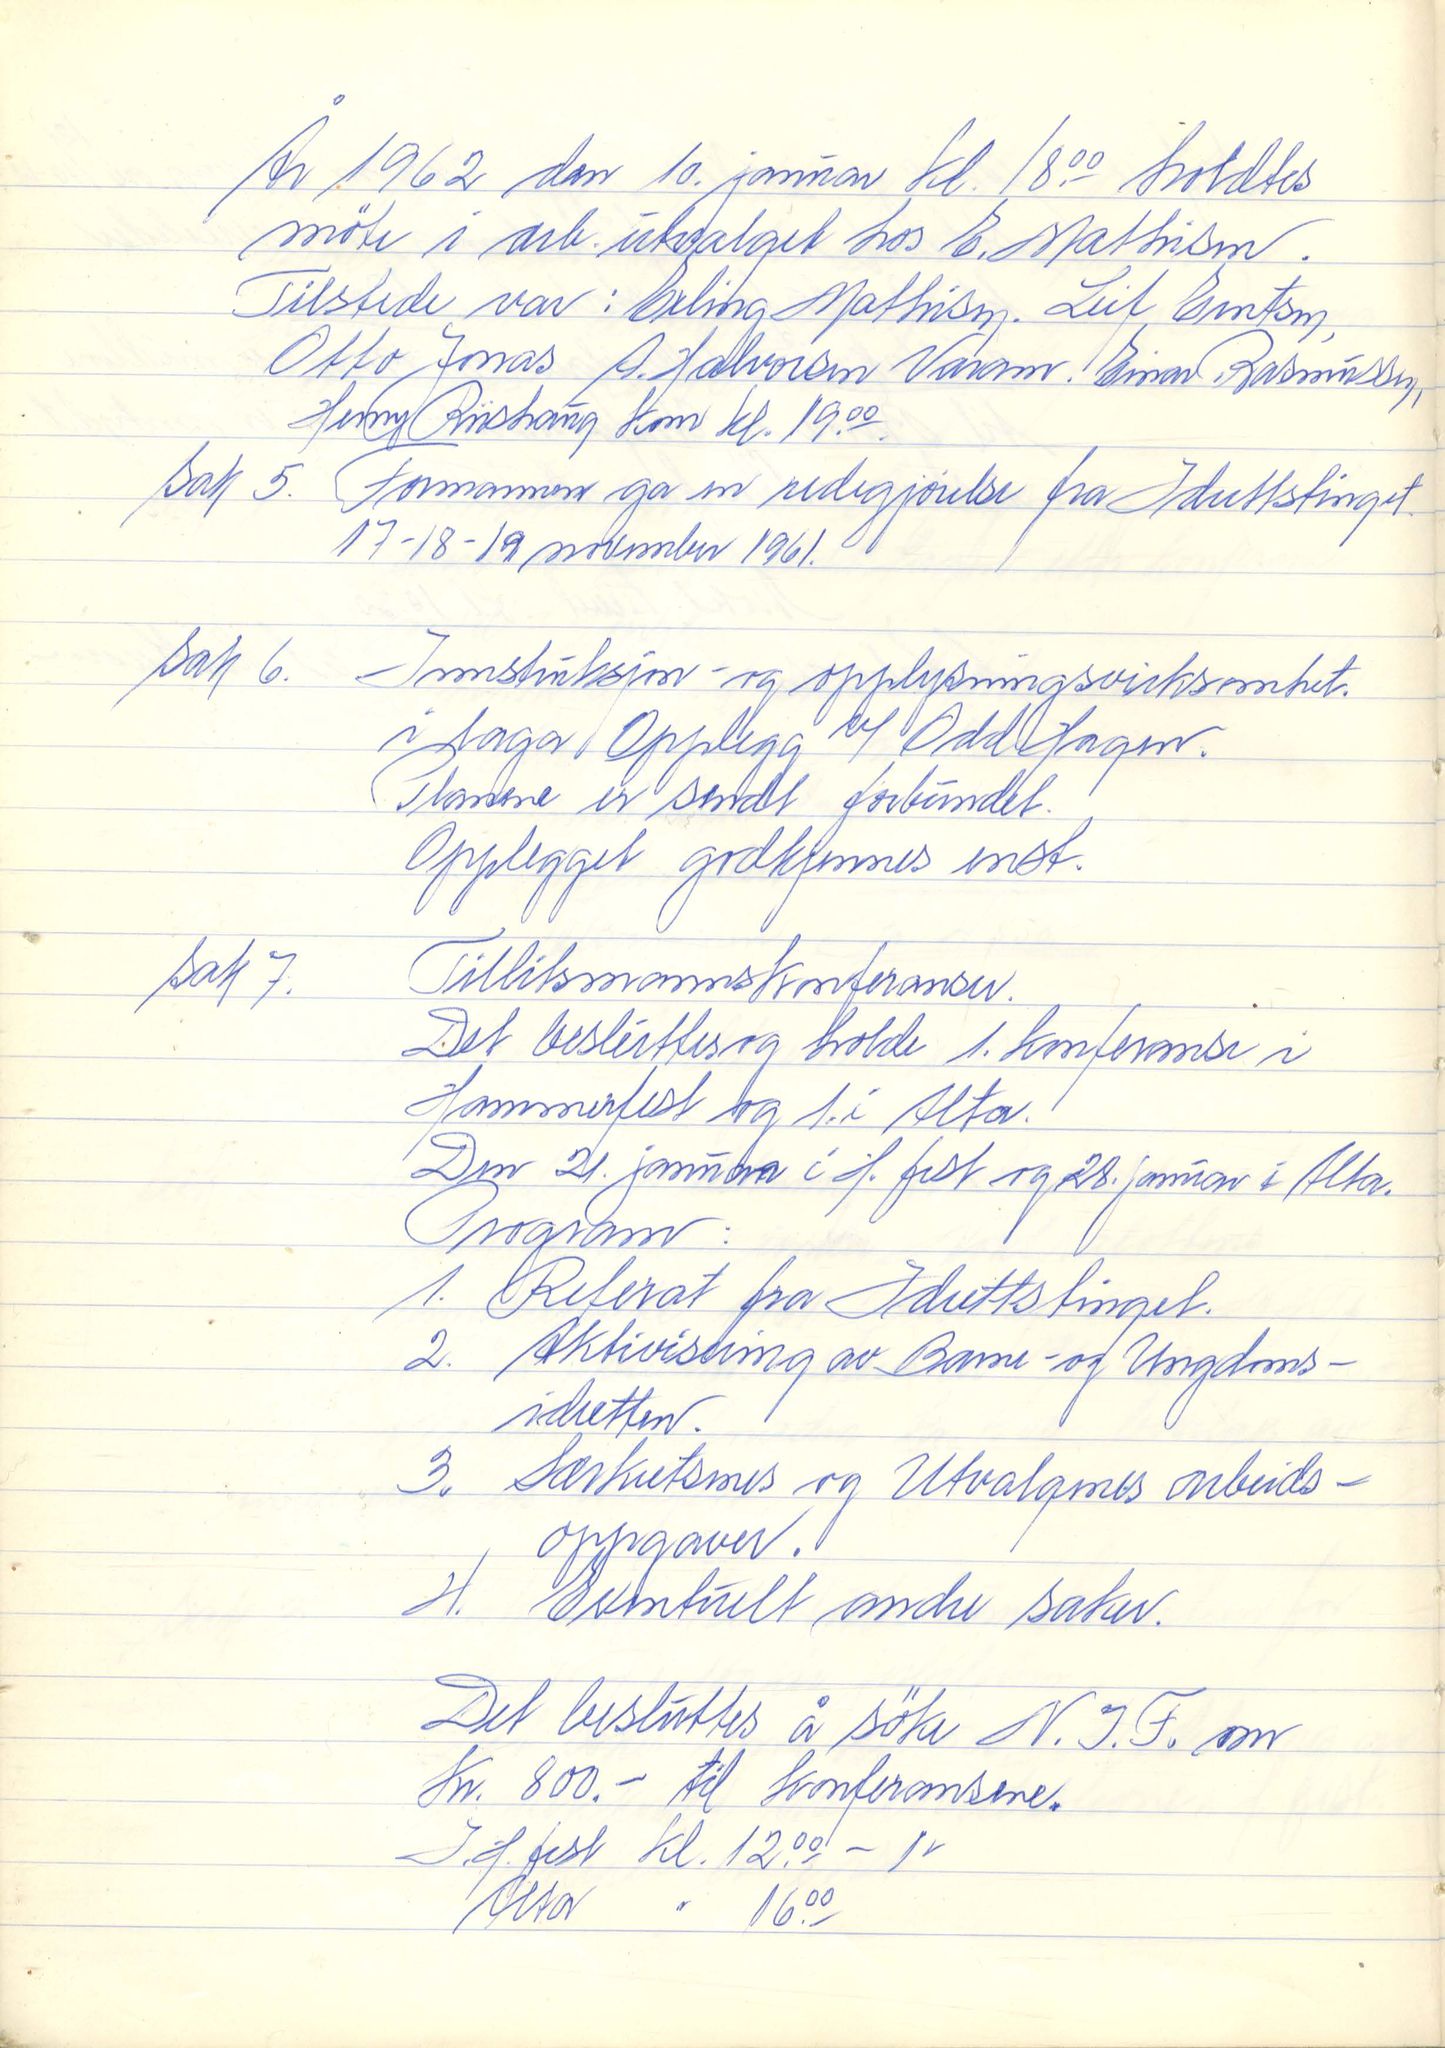 År 1962 den 10. januar kl. 18.00 holdtes
möte i arb. utvalget hos E. Mathisen.
Tilstede var: Erling Mathisen. Leif Erntsen,
Otto Jonas A. Halvorsen Varam. Einar Rasmussen,
Henry kom kl. 19.00.
Sak 5. Formannen ga en redegjörelse fra Idrettstinget
17-18-19 november 1961.
Sak 6. Innstruksjon- og opplysningsvirksomhet.
i Opplegg v/ Odd Hagen.
Planene er sendt forbundet.
Opplegget godkjennes enst.
Sak 7. Tillitsmannskonferanser.
Det besluttes og holde 1. konferanse i
Hammerfest og 1. i Alta.
Den 21. januar i H. fest og 28. januar i Alta.
Program:
1. Referat fra Idrettstinget.
2. Aktivisering av Barne- og Ungdoms-
idretten.
3. Særkretsenes og Utvalgenes arbeids-
oppgaver.
4. Eventuelt andre saker.
Det besluttes å söke N.I.F. om
Kr. 800.- til konferansene.
I H. fest kl. 12.00 -
Alta " 16.00